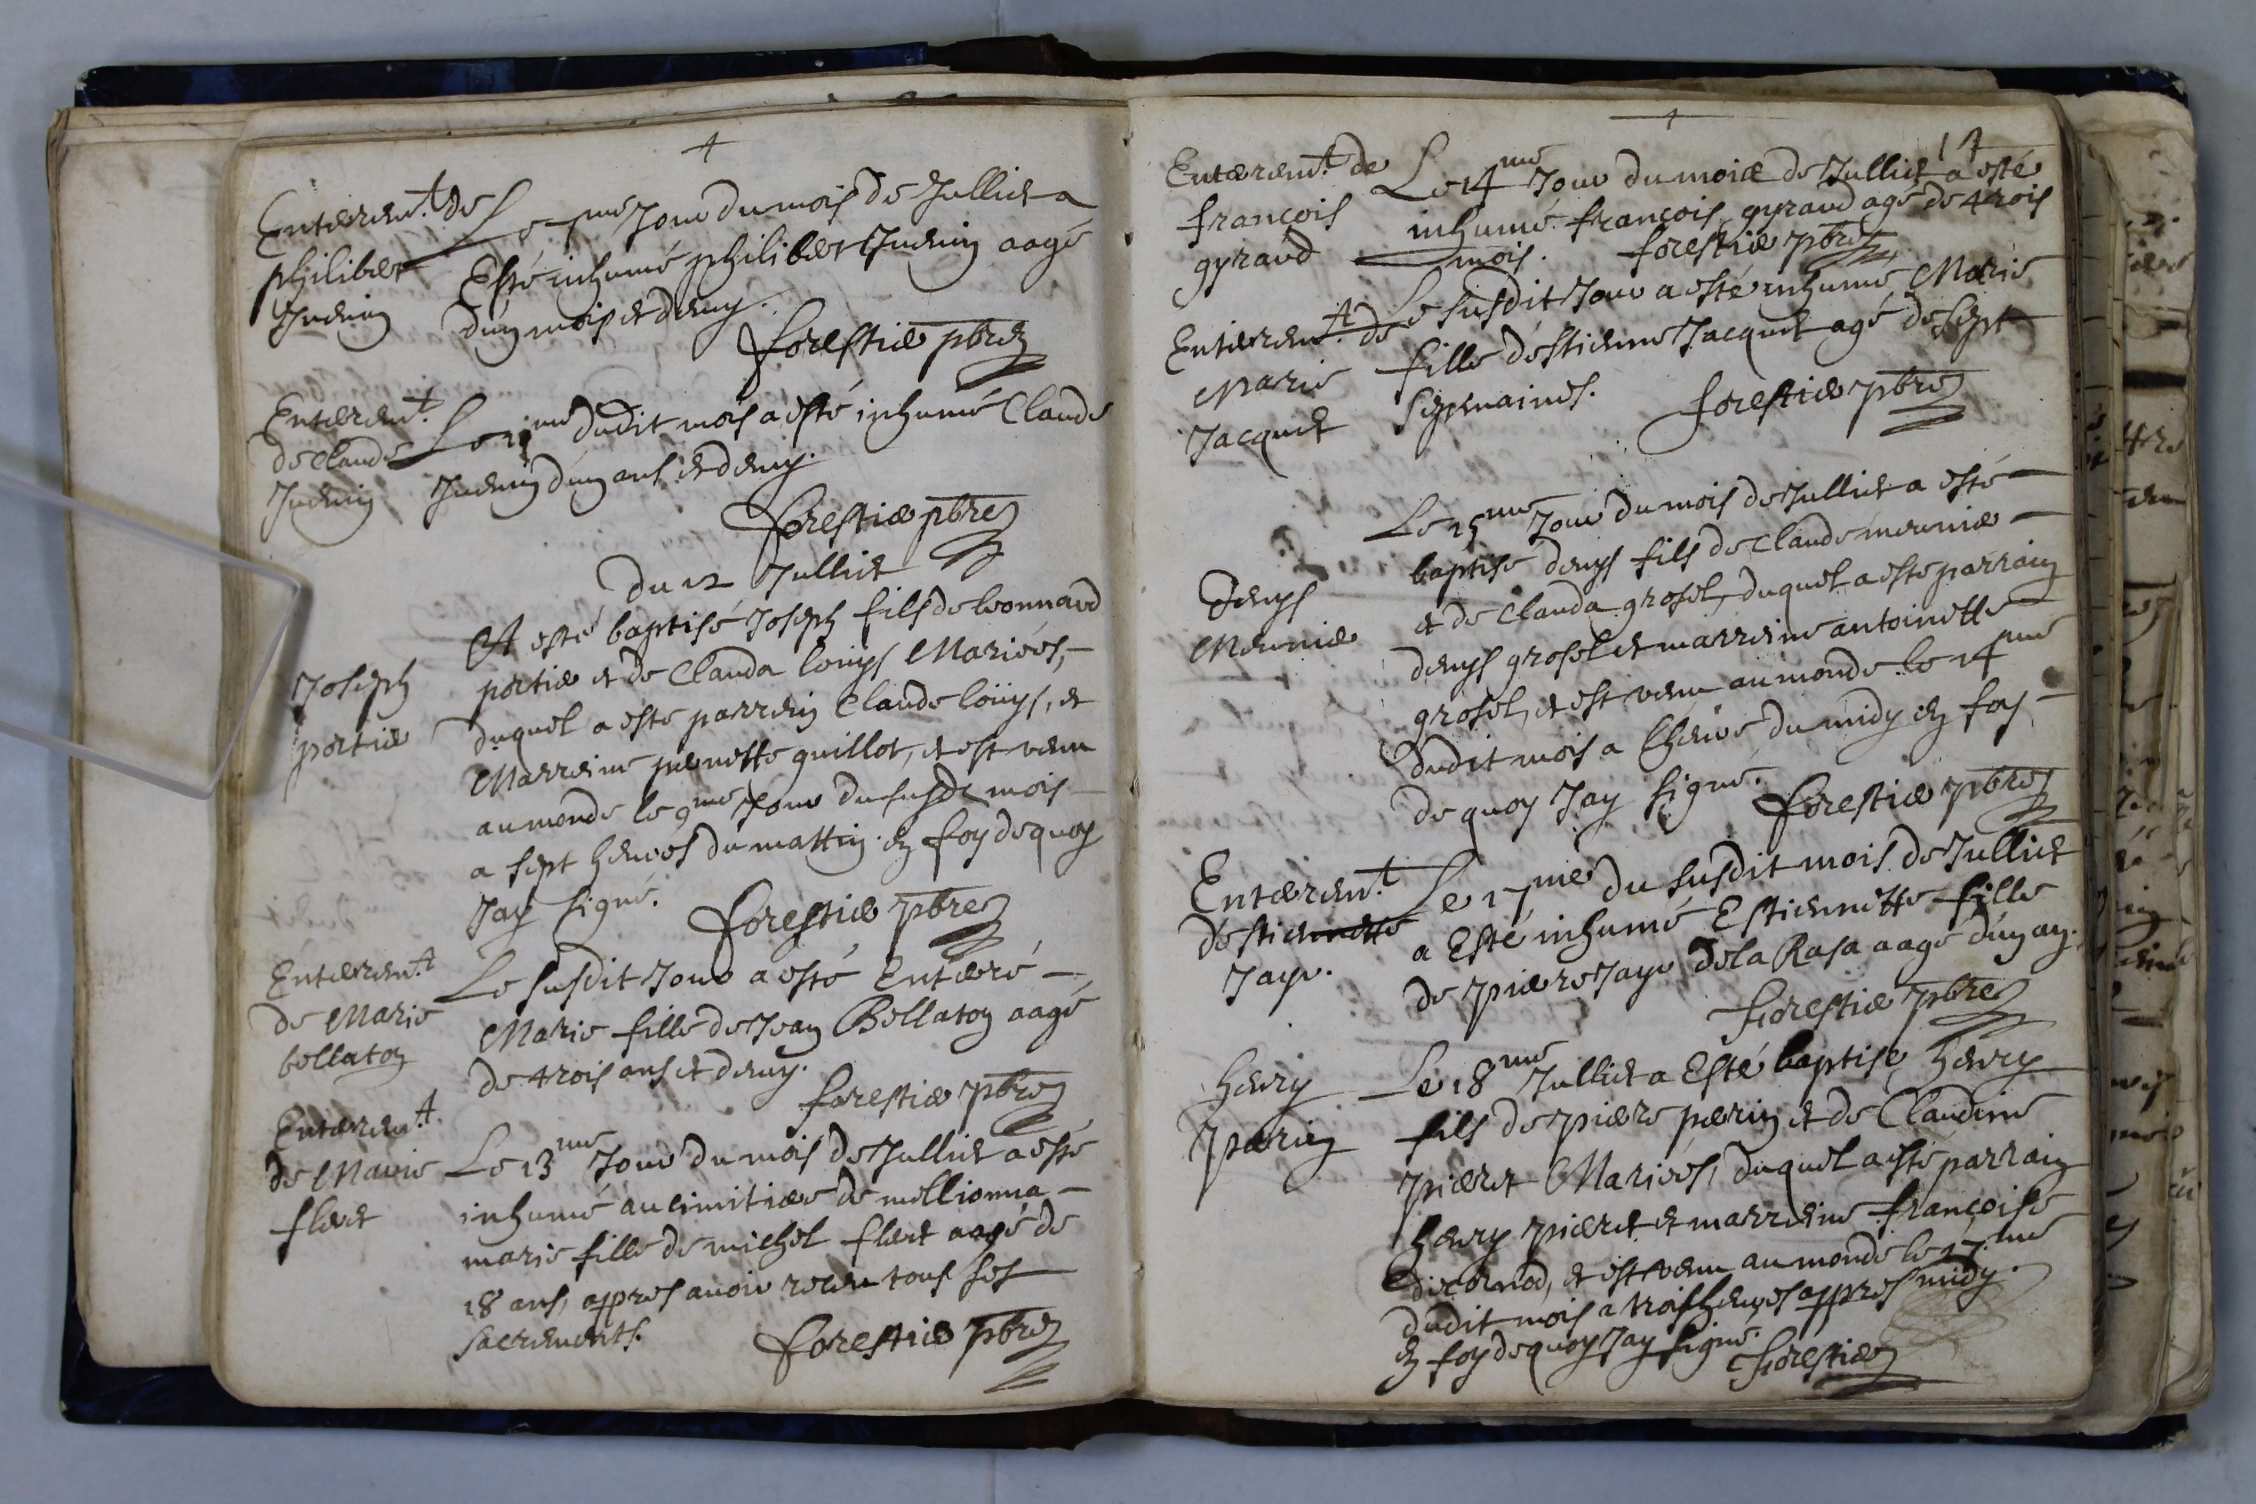 Enterem.t de
philiber
Juenin
Le 7me Jour du mois de Julliet a
Esté inhumé philiber Juenin aagé
d'un mois et demy.
forestier pbre
Enterem.t
de Claude
Juenin
Le 11me dudit mois a esté inhumé Claude
Juenin d'un ans et demy.
forestier pbre
Du 12 Julliet
Joseph
portier
A esté baptisé Joseph fils de leonnard
portier et de Clauda loüys Mariées,
duquel a esté parrein Claude loüys, et
Marreine pernette guillot, et est venu
au monde le 9me Jour du susdt mois
a sept heures du mattin. en foy de quoy
Jay signé.
forestier pbre
Enterem.t
de Marie
bellaton
Le susdit Jour a esté Enterré
Marie fille de Jean Bellaton aagé
de trois ans et demy.
forestier pbre
Enterem.t
de Marie
flert
Le 13me Jour du mois de Julliet a esté
inhumé au cimitiere de millionna
marie fille de michel flert aagé de
18 ans, appres avoir receu tous ses
sacrements.
forestier pbre
Enterem.t de
françois
gyraud
Le 14me Jour du mois de Julliet a esté
inhumé françois gyraud agé de trois
mois. forestier pbre
Enterem.t de
Marie
Jacquet
Le susdit Jour a esté inhumé Marie
fille d'estienne Jacquet agé de sept
sepmaines. forestier pbre
Denys
Meunier
Le 15me Jour du mois de Julliet a esté
baptisé denys fils de Claude meunier
et de Clauda grosel, duquel a este parrain
denys grosel et marreine antoinette
grosel, et est venu au monde le 14me
dudit mois a lheure du midy en foy
de quoy Jay signé.
forestier pbre
Enterem.t
d'estiennette
Jaye.
Le 17me du susdit mois de Julliet
a Esté inhumé Estiennette fille
de pierre Jaye de la Rasa aagé d'un an.
forestier pbre
henry
perrin
Le 18me Julliet a Esté baptisé henry
fils de pierre perrin et de Claudine
pieret Mariées, duquel a esté parrain
henry pieret et marreine françoise
decornod, et est venu au monde le 17.me
dudit mois a trois heures appres midy.
en foy de quoy Jay signé. forestier